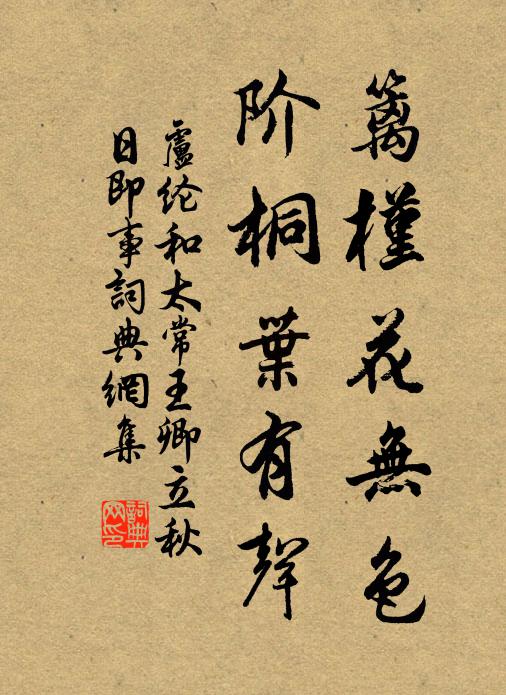 篱槿花無色
阶桐葉有聲
盧纶和太常王卿立秋
日即事詞典網集
詞典
网印